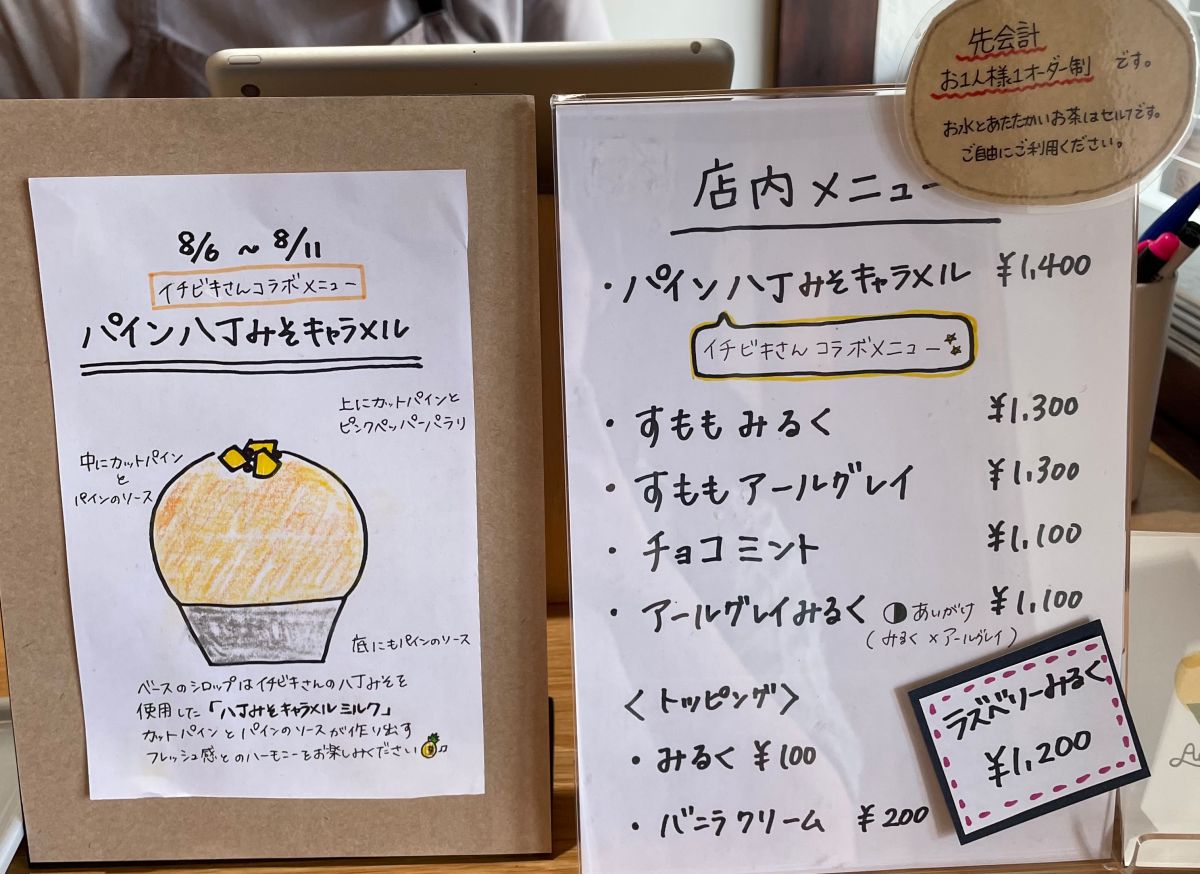 8/6 ~ 8/11
イチビキさんコラボメニュー
パイン八丁みそキャラメル
上にカットパインと
ピンクペッパーパラリ
中にカットパイン
と
パインのソース
底にもパインのソース
ベースのシロップはイチビキさんの八丁みそを
使用した「八丁みそキャラメルミルク」
カットパインとパインのソースが作り出す
フレッシュ感とのハーモニーをお楽しみください♫
先会計
お1人様1オーダー制 です。
お水とあたたかいお茶はセルフです。
ご自由にご利用ください。
店内メニュー
・パイン八丁みそキャラメル ¥1,400
イチビキさんコラボメニュー
・すももみるく ¥1,300
・すももアールグレイ ¥1,300
・チョコミント ¥1,100
・アールグレイみるく ◑あいがけ ¥1,100
(みるく×アールグレイ)
〈トッピング〉
・みるく ¥100
・バニラクリーム ¥200
ラズベリーみるく
¥1,200